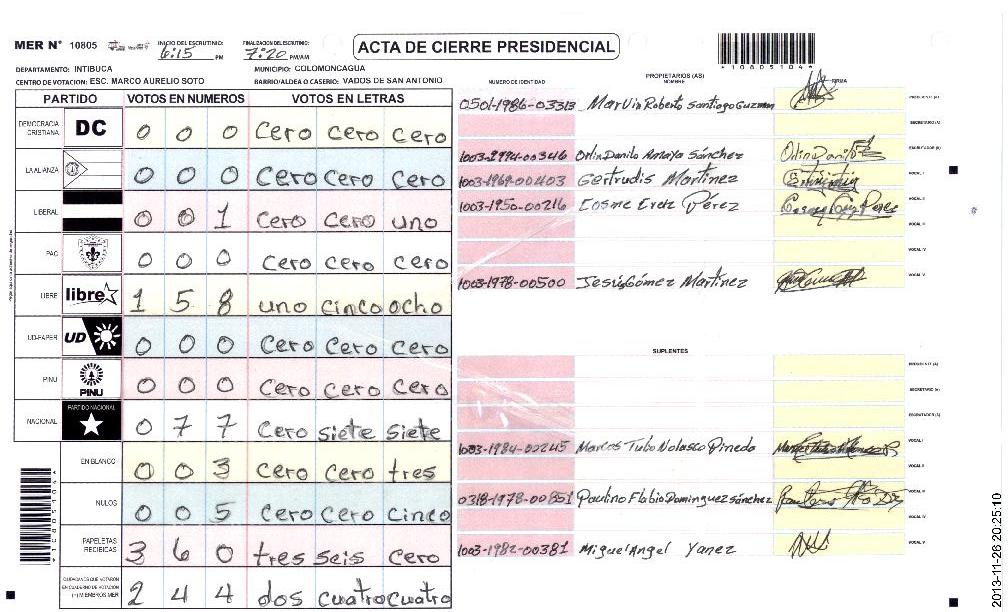 MER N° 10805
INICIO DEL ESCRUTINIO: 6:15 PM
FINALIZACION DEL ESCRUTINIO: 7:20 PM/AM
ACTA DE CIERRE PRESIDENCIAL
*10805104*
DEPARTAMENTO: INTIBUCA
MUNICIPIO: COLOMONCAGUA
CENTRO DE VOTACION: ESC. MARCO AURELIO SOTO
BARRIO/ALDEA O CASERIO: VADOS DE SAN ANTONIO
PARTIDO VOTOS EN NUMEROS VOTOS EN LETRAS
DEMOCRACIA CRISTIANA DC 0 0 0 Cero cero cero
LA ALIANZA 0 0 0 Cero Cero Cero
LIBERAL 0 0 1 Cero Cero uno
PAC 0 0 0 Cero Cero Cero
LIBRE libre 1 5 8 uno cinco ocho
UD-FAPER UD 0 0 0 Cero Cero Cero
PINU PINU 0 0 0 Cero Cero Cero
NACIONAL PARTIDO NACIONAL 0 7 7 Cero siete siete
EN BLANCO 0 0 3 Cero Cero tres
NULOS 0 0 5 Cero Cero Cinco
PAPELETAS RECIBICAS 3 6 0 tres seis Cero
CIUDADANOS QUE VOTARON EN CUADERNO DE VOTACION (+) MIEMBROS MER 2 4 4 dos cuatro cuatro
*10805104*
PROPIETARIOS (AS)
NUMERO DE IDENTIDAD NOMBRE FIRMA
0501-1986-03313 Marvin Roberto Santiago Guzman PRESIDENTE (A)
SECRETARIO (A)
1003-1994-00346 Orlin Danilo Amaya Sánchez Orlin Danilo ESCRUTADOR (A)
1003-1969-00403 Gertrudis Martinez VOCAL I
1003-1950-00216 Cosme Eretz Pérez VOCAL II
VOCAL III
VOCAL IV
1003-1978-00500 Jesús Gómez Martinez VOCAL V
SUPLENTES
PRESIDENTE (A)
SECRETARIO (A)
ESCRUTADOR (A)
1003-1984-00245 Marcos Tubo Nolasco Pineda VOCAL I
VOCAL II
0318-1978-00851 Paulino Flabio Dominguez Sánchez VOCAL III
VOCAL IV
1003-1982-00381 Miguel Angel Yanez VOCAL V
2013-11-26 20:25:10